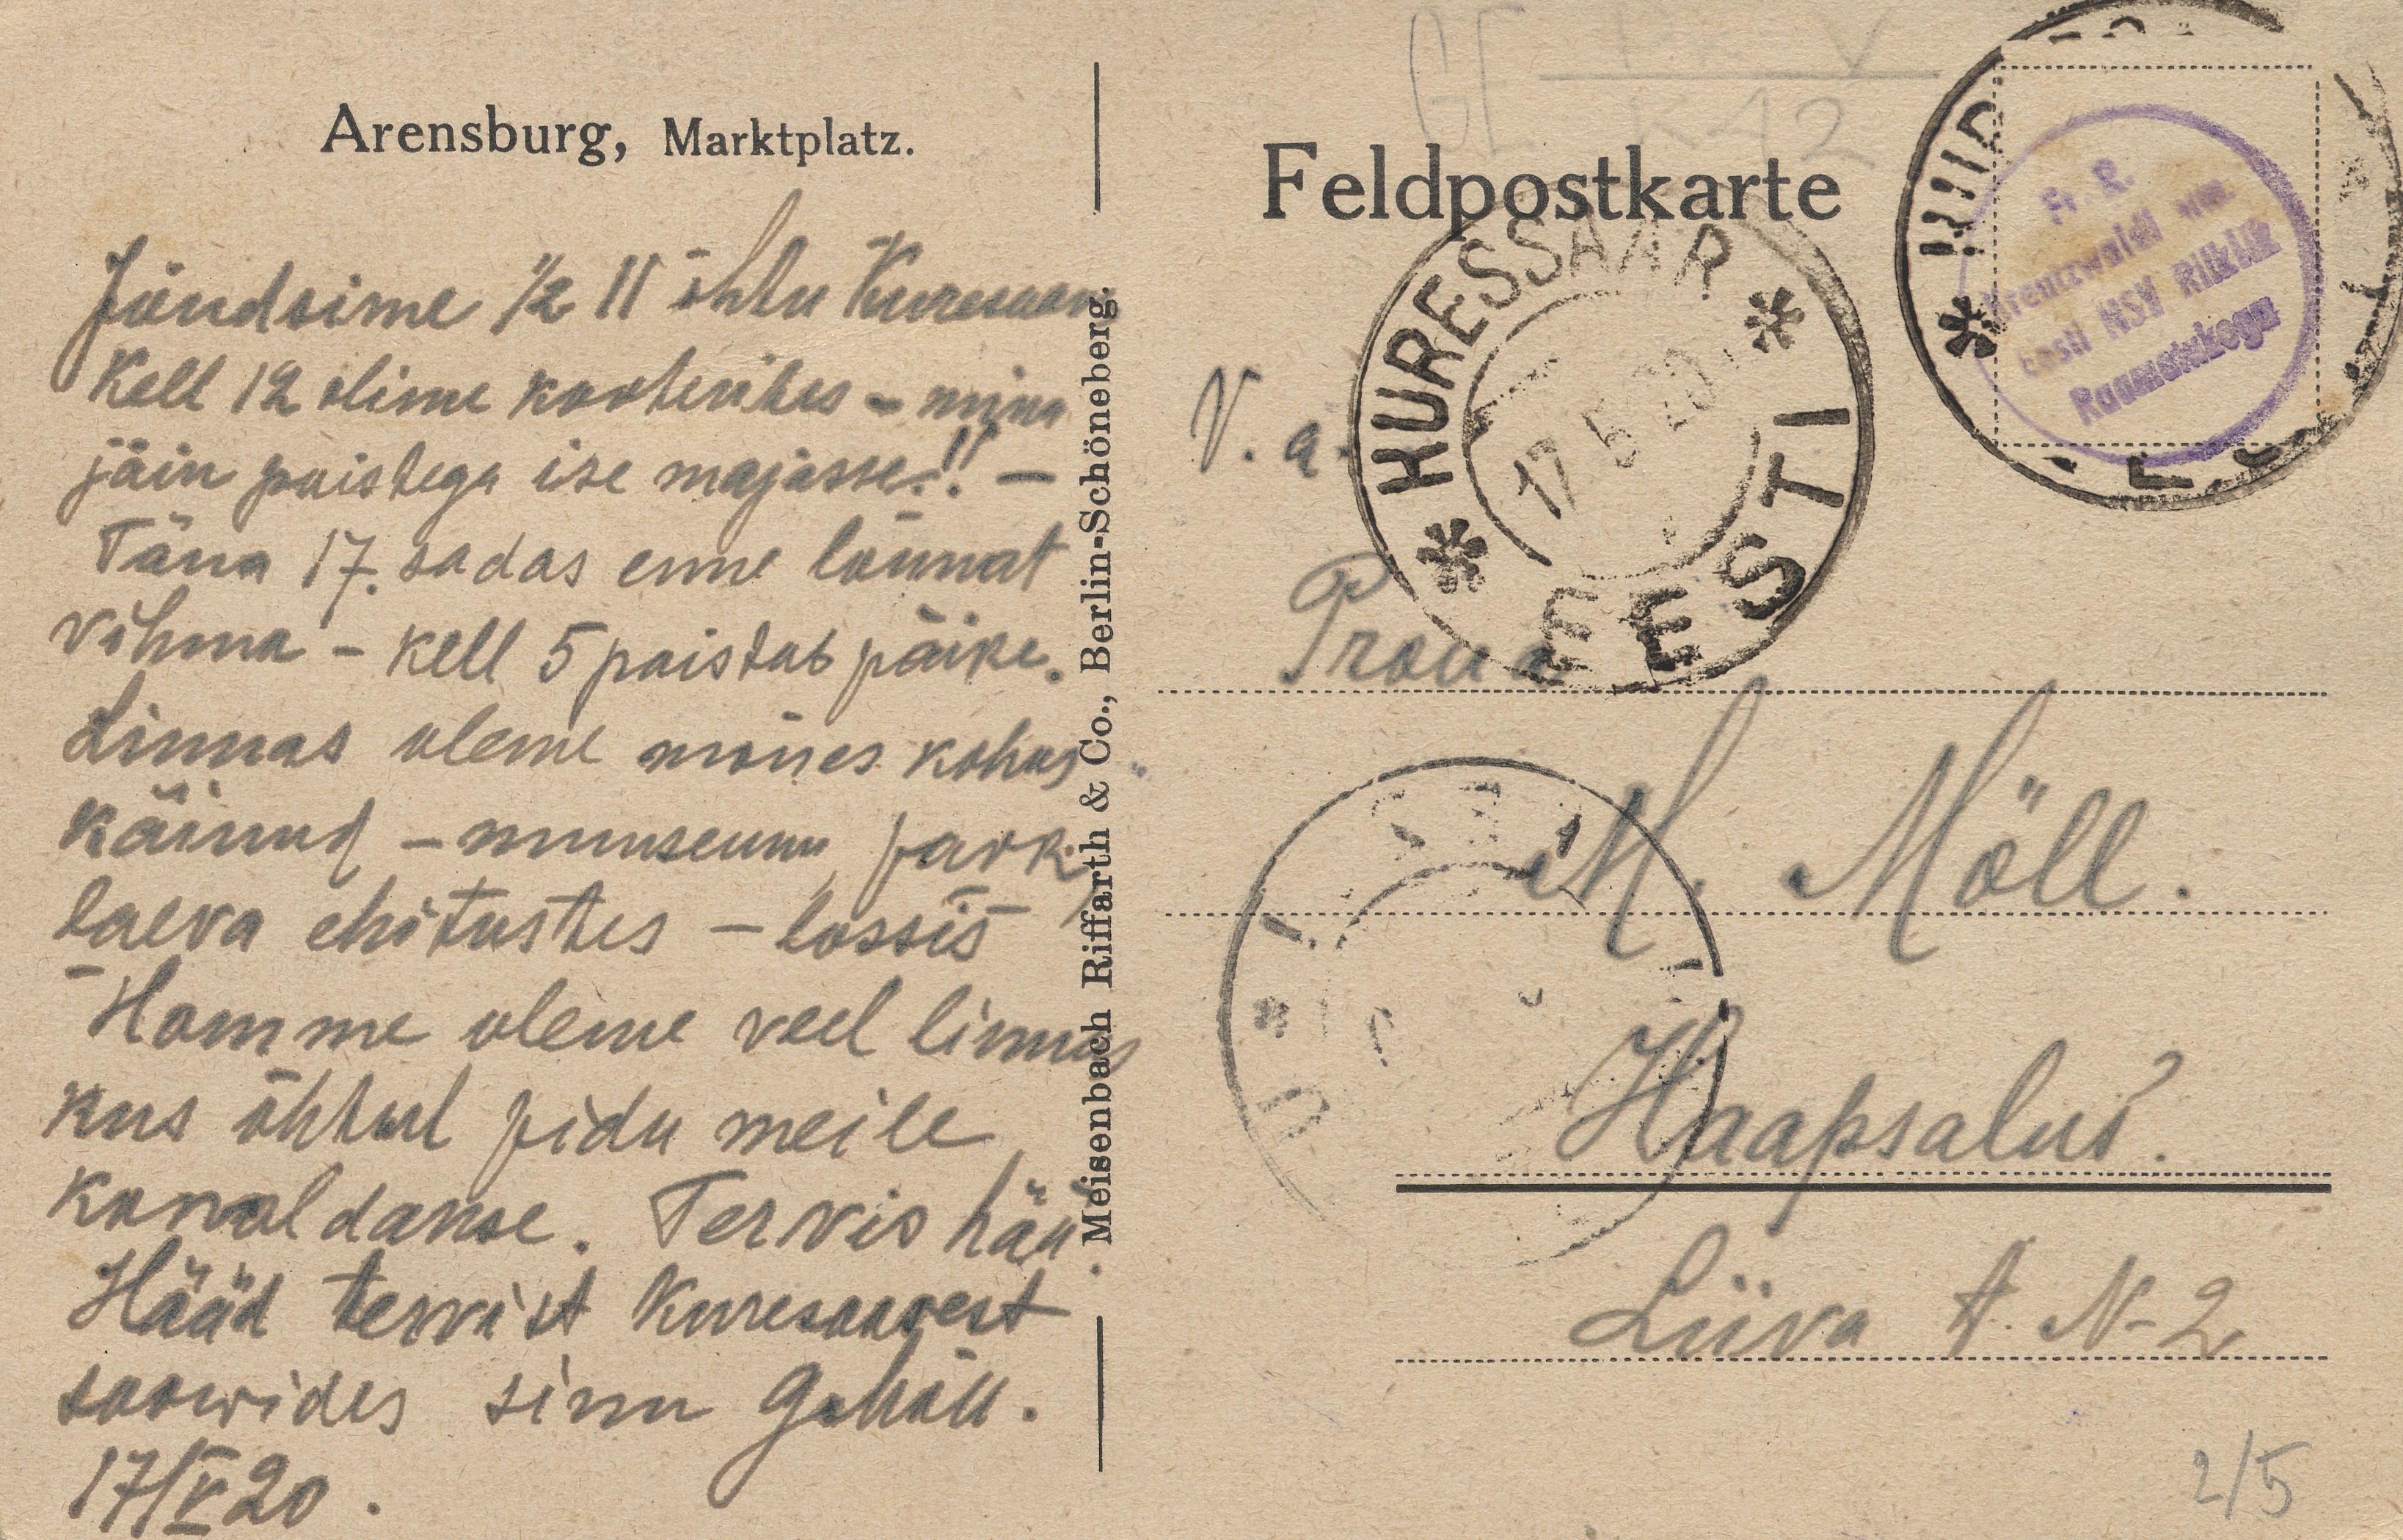 Arensburg, Marktplatz.
Jõudsime 1/2 11 õhtu Kuresaare
Kell 12 olime korterites - mina
jäin poistega ise majasse!! -
Täna 17. sadas enne lõunat
vihma - kell 5 paistab päike.
Linnas oleme mõnes kohas
käinud - muuseumi, park,
laeva ehitustes - lossis
- Homme oleme veel linnas
kus õhtul pidu meile
korraldakse. Tervis hää.
Hääd tervist Kuresaarest
soowides sinu G. Möll.
17/V 20.
Meisenbach Riffarth & Co., Berlin-Schöneberg.
Feldpostkarte
KURESSAAR
17 5 20
EESTI
Fr. R.
Kreutzwaldi nim.
Eesti NSV Riiklik
Raamatukogu
V. a.
Proua
M. Möll.
Haapsalus.
Liiva t. N-2
2/5